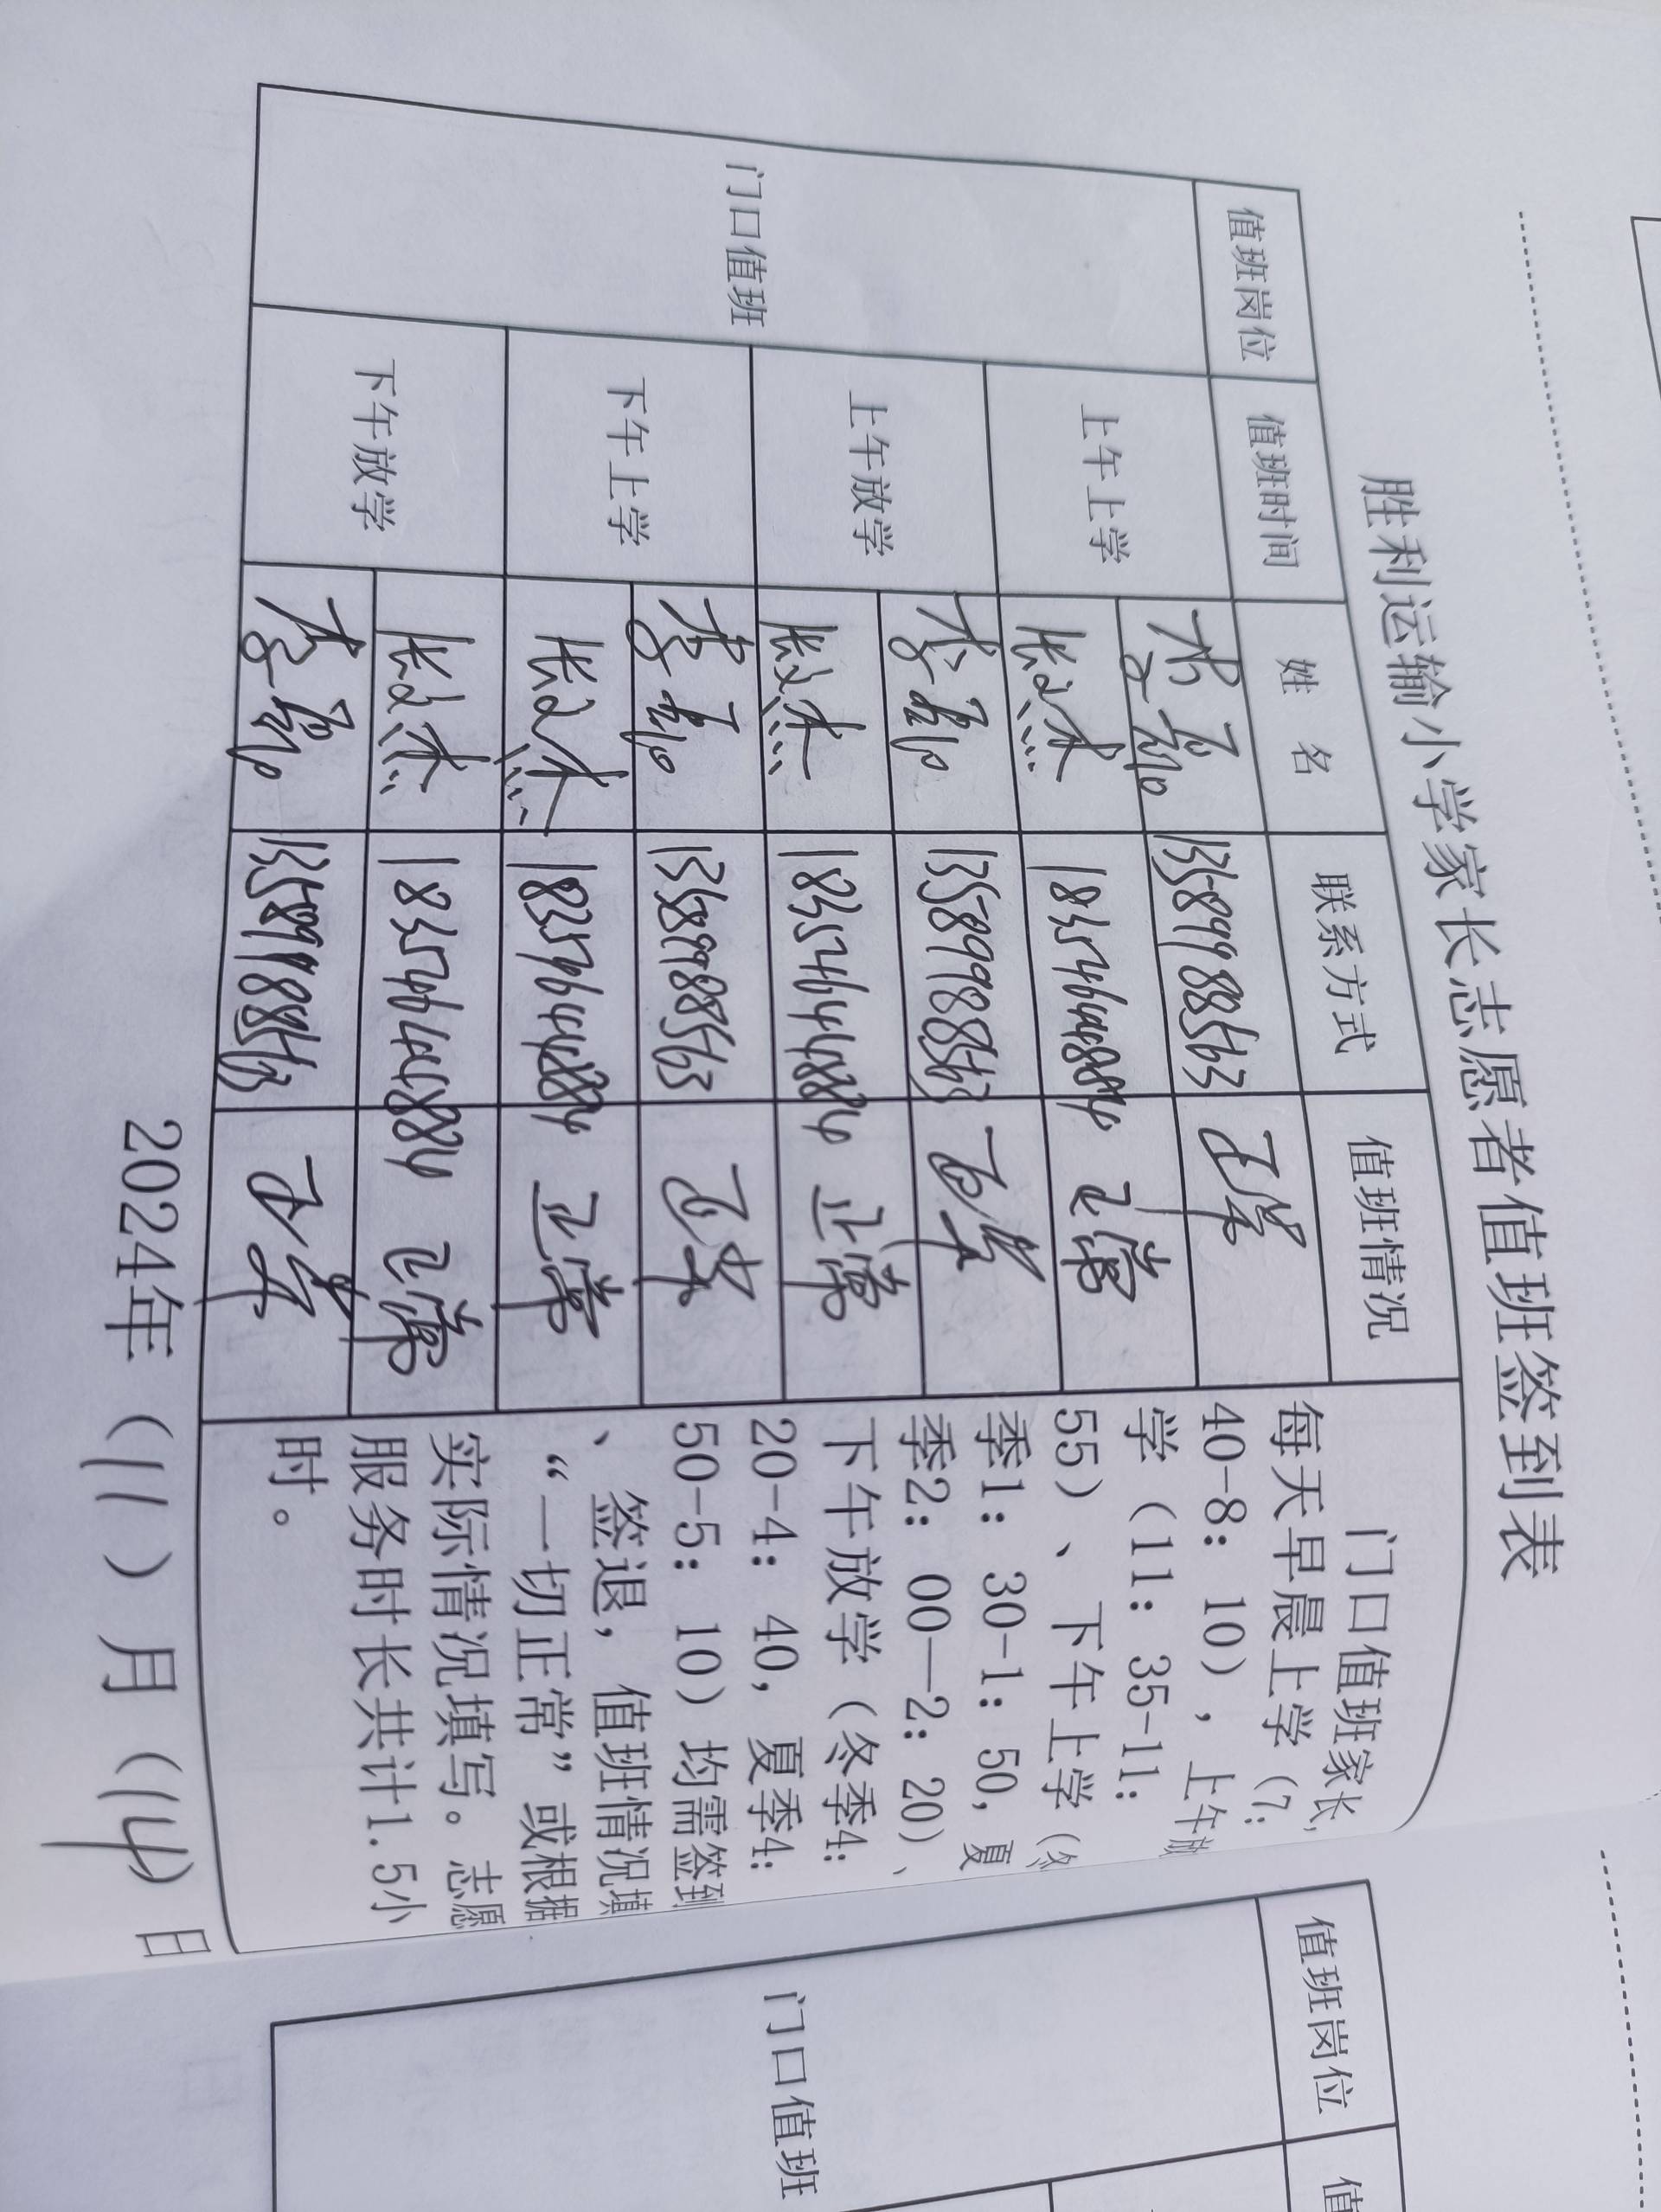 胜利运输小学家长志愿者值班签到表
值班岗位 值班时间 姓 名 联系方式 值班情况
门口值班
上午上学
13589988563 正常
张文杰 18354644884 正常
上午放学
13589988563 正常
张文杰 18354644884 正常
下午上学
13589988563 正常
张文杰 18354644884 正常
下午放学
张文杰 18354644884 正常
13589988563 正常
门口值班家长,
每天早晨上学（7:
40-8: 10），上午放
学（11: 35-11:
55）、下午上学（冬
季1: 30-1: 50，夏
季2: 00—2: 20）、
下午放学（冬季4:
20-4: 40，夏季4:
50-5: 10）均需签到
、签退，值班情况填
“一切正常”或根据
实际情况填写。志愿
服务时长共计1.5小
时。
2024年（11）月（14）日
值班岗位
门口值班